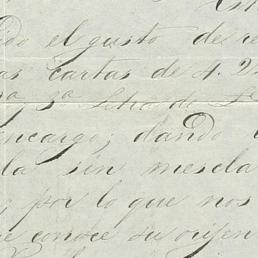 do el gusto de re
as cartas de 4. 2
3ª Letra de
encargo; dando
la sin mescla
por lo que nos
e conoce su orijen